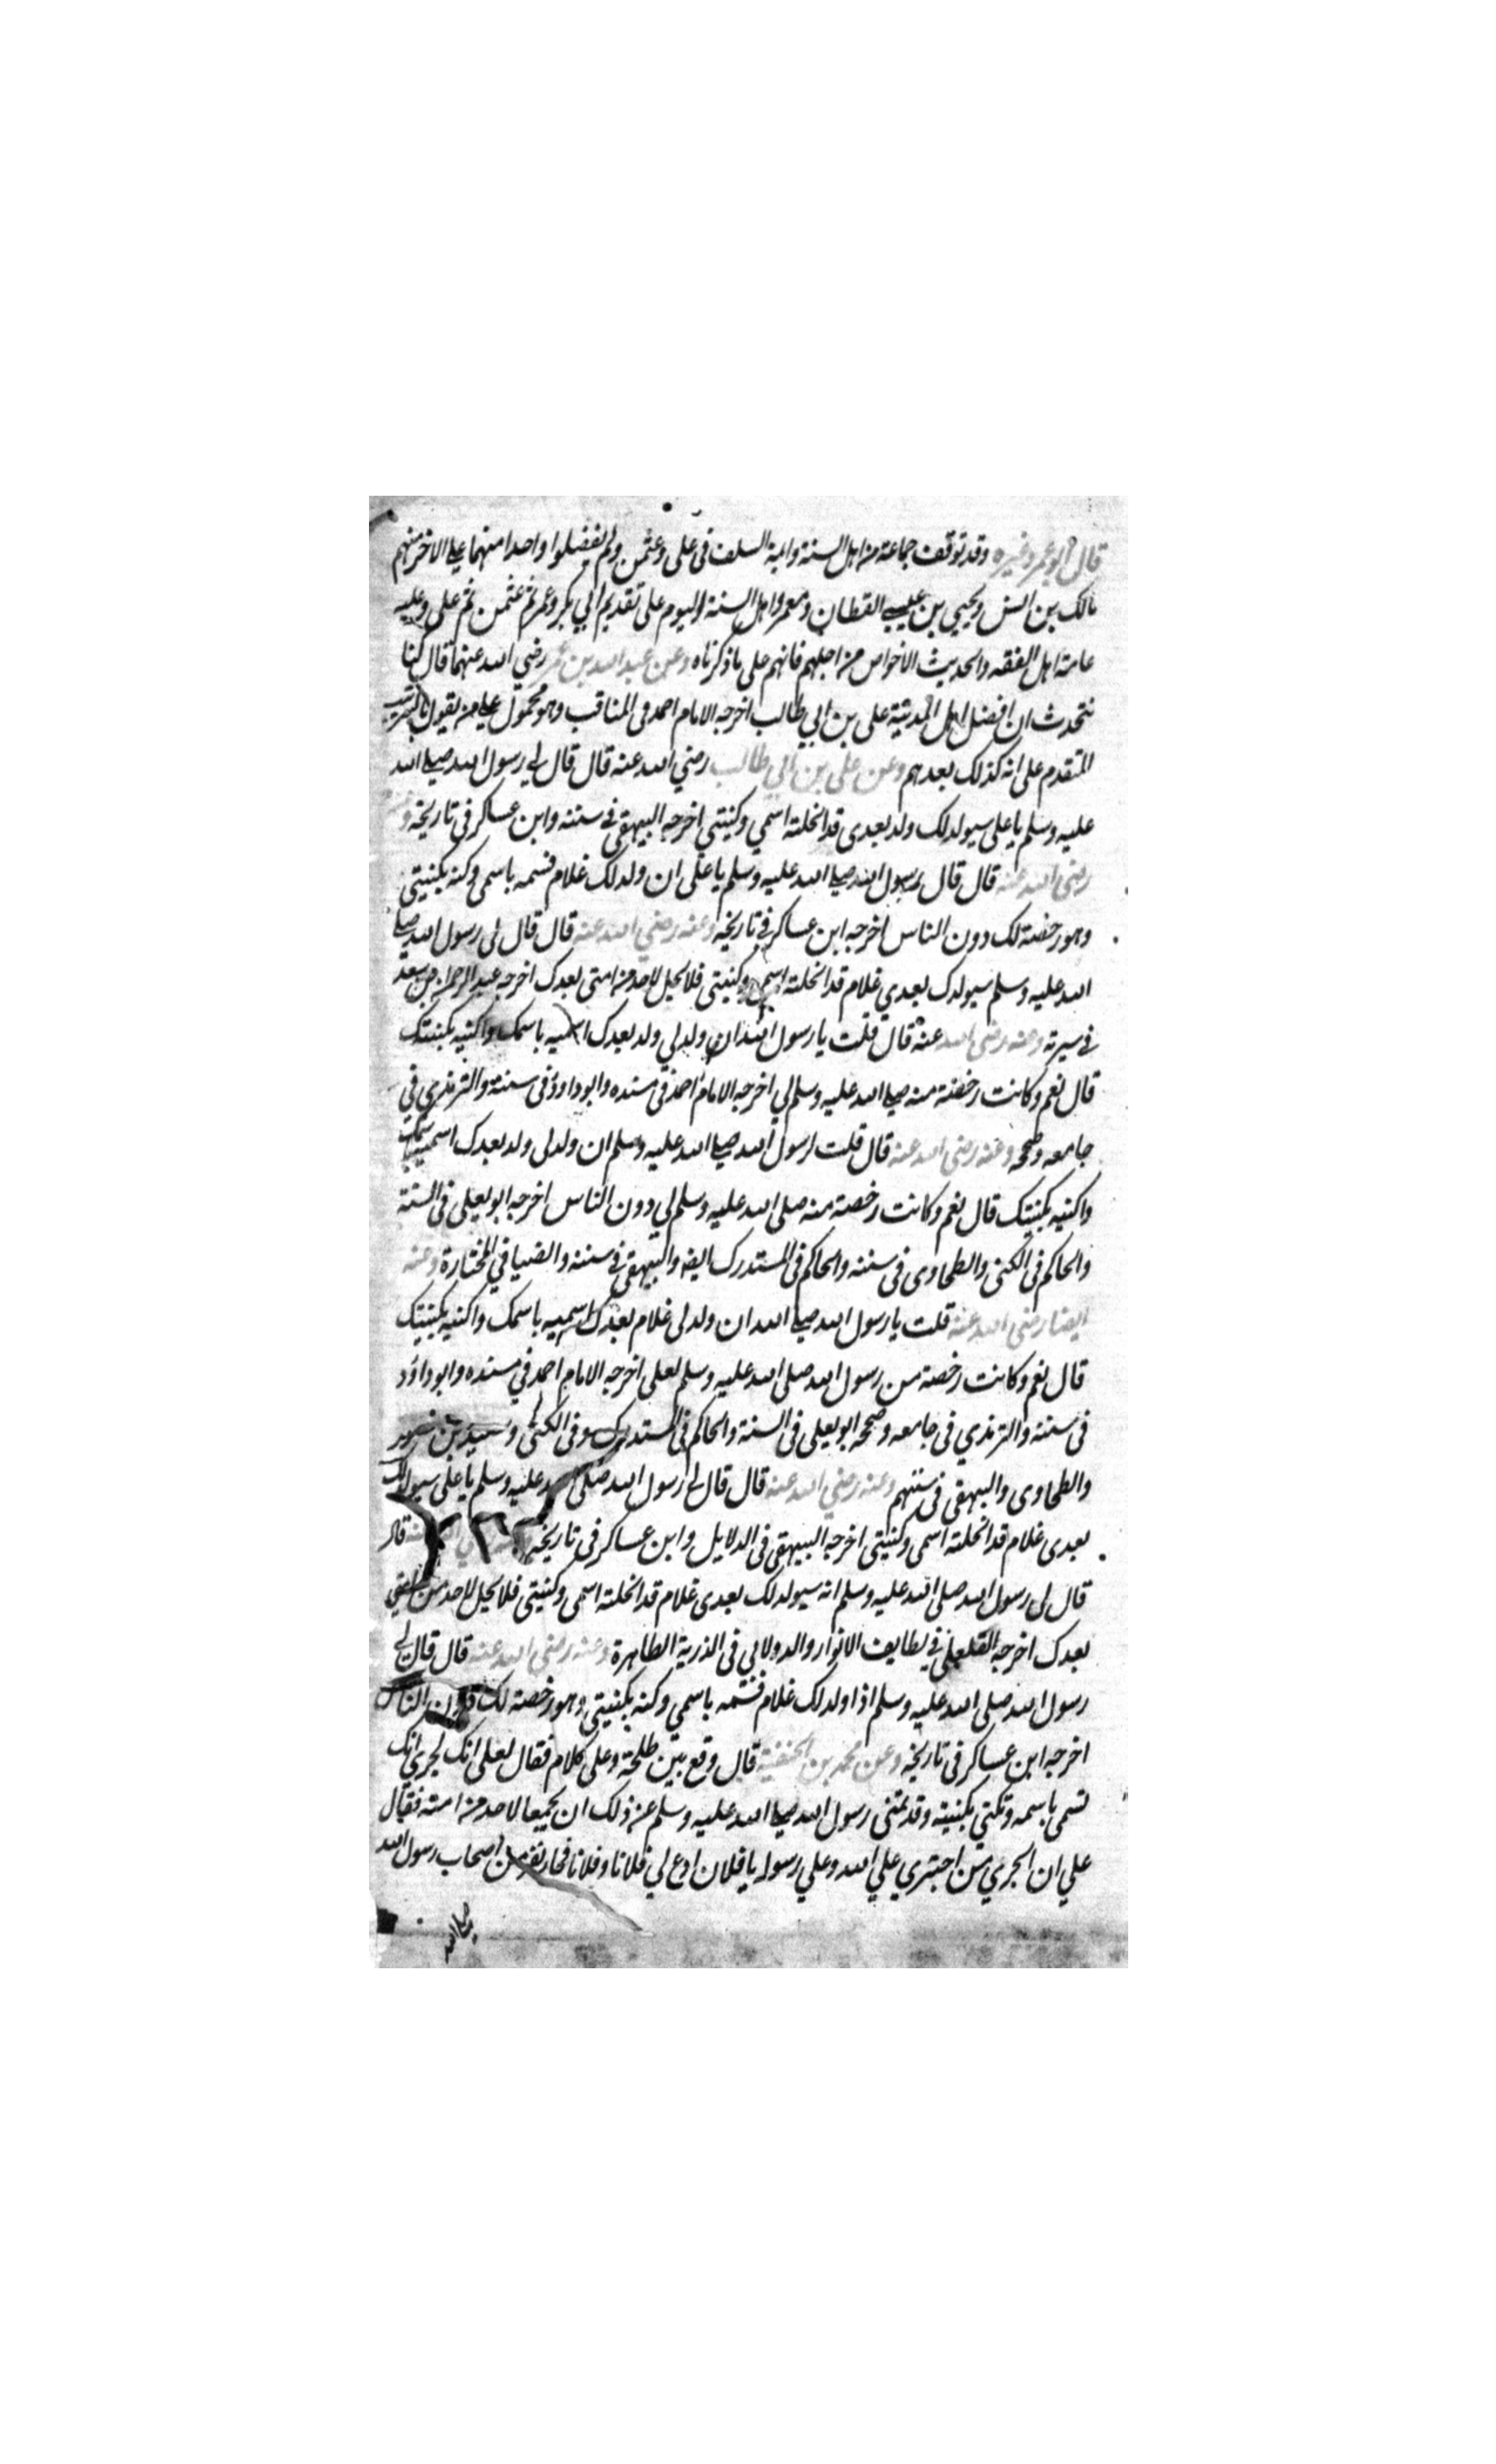 قال ابو عمر وغيره وقد توقف جماعة من اهل السنة وايمة السلف فى على وعثمن ولم يفضلوا واحدا منهما على الاخر منهم
مالك بن انس ويحيى بن القطان ومعمر واهل السنة اليوم على تقديم ابي بكر وعمر ثم عثمن ثم على وعليه
عامة اهل الفقه والحديث الاخواص من اجلهم فانهم على ما ذكرناه وعن عبد الله بن عمر رضي الله عنهما قال كنا
نتحدث ان افضل اهل المدينة على بن ابي طالب اخرجه الامام احمد فى المناقب وهو محمول على من يقول
المتقدم على انه كذلك بعدهم وعن على بن ابي طالب رضي الله عنه قال قال لي رسول الله صلى الله
عليه وسلم يا على سيولد لك ولد بعدى قد انحلته اسمي وكنيتي اخرجه البيهقى فى سننه وابن عساكر فى تاريخه وعنه
رضى الله عنه قال قال رسول الله صلى الله عليه وسلم يا على ان ولد لك غلام فسمه باسمى وكنه بكنيتي
وهو رخصة لك دون الناس اخرجه ابن عساكر فى تاريخه وعنه رضي الله عنه قال قال لى رسول الله صلى
الله عليه وسلم سيولد لك بعدي غلام قد انحلته اسمى وكنيتي فلا يحل لاحد من امتى بعدك اخرجه عبد الرحمن بن سعد
فى سيرته وعنه رضى الله عنه قال قلت يا رسول الله ان ولد لي ولد بعدك اسميه باسمك واكنيه بكنيتك
قال نعم وكانت رخصة منه صلى الله عليه وسلم لي اخرجه الامام احمد فى مسنده وابو داود فى سننه والترمذي فى
جامعه وصححه وعنه رضى الله عنه قال قلت لرسول الله صلى الله عليه وسلم ان ولد لى ولد بعدك اسميه باسمك
واكنيه بكنيتك قال نعم وكانت رخصة منه صلى الله عليه وسلم لي دون الناس اخرجه ابو يعلى فى السنة
والحاكم فى الكنى والطحاوى فى سننه والحاكم فى المستدرك ايضا والبيهقى فى سننه والضيا في المختارة وعنه
ايضا رضى الله عنه قلت يا رسول الله صلى الله ان ولد لى غلام بعدك اسميه باسمك واكنيه بكنيتك
قال نعم وكانت رخصة من رسول الله صلى الله عليه وسلم لعلى اخرجه الامام احمد في مسنده وابو داؤد
فى سننه والترمذي فى جامعه وصححه ابو يعلى فى السنة والحاكم فى المستدرك وفى الكنى وسعيد بن منصور
والطحاوى والبيهقى فى سننهم وعنه رضي الله عنه قال قال لي رسول الله صلى وعليه وسلم يا على سيولد لك
بعدى غلام قد انحلته اسمى وكنيتى اخرجه البيهقى فى الدلايل وابن عساكر فى تاريخه قال
قال لى رسول الله صلى الله عليه وسلم انه سيولد لك بعدى غلام قد انحلته اسمى وكنيتى فلا يحل لاحد من امتي
بعدك اخرجه القلعلى فى لطايف الانوار والدولابي فى الذرية الطاهرة وعنه رضى الله عنه قال قال لي
رسول الله صلى الله عليه وسلم اذا ولد لك غلام فسمه باسمي وكنه بكنيتي وهو رخصة لك دون الناس
اخرجه ابن عساكر فى تاريخه وعن محمد بن الحنفية قال وقع بين طلحة وعلى كلام فقال لعلى انك لجري انك
تسمى باسمه وتكنى بكنيته وقد نهى رسول الله صلى الله عليه وسلم عن ذلك ان يجمعا لاحد من امته فقال
علي ان الجري من اجترى علي الله وعلي رسوله يا فلان ادع لي فلانا وفلانا فجا نفر من اصحاب رسول الله
صلى الله